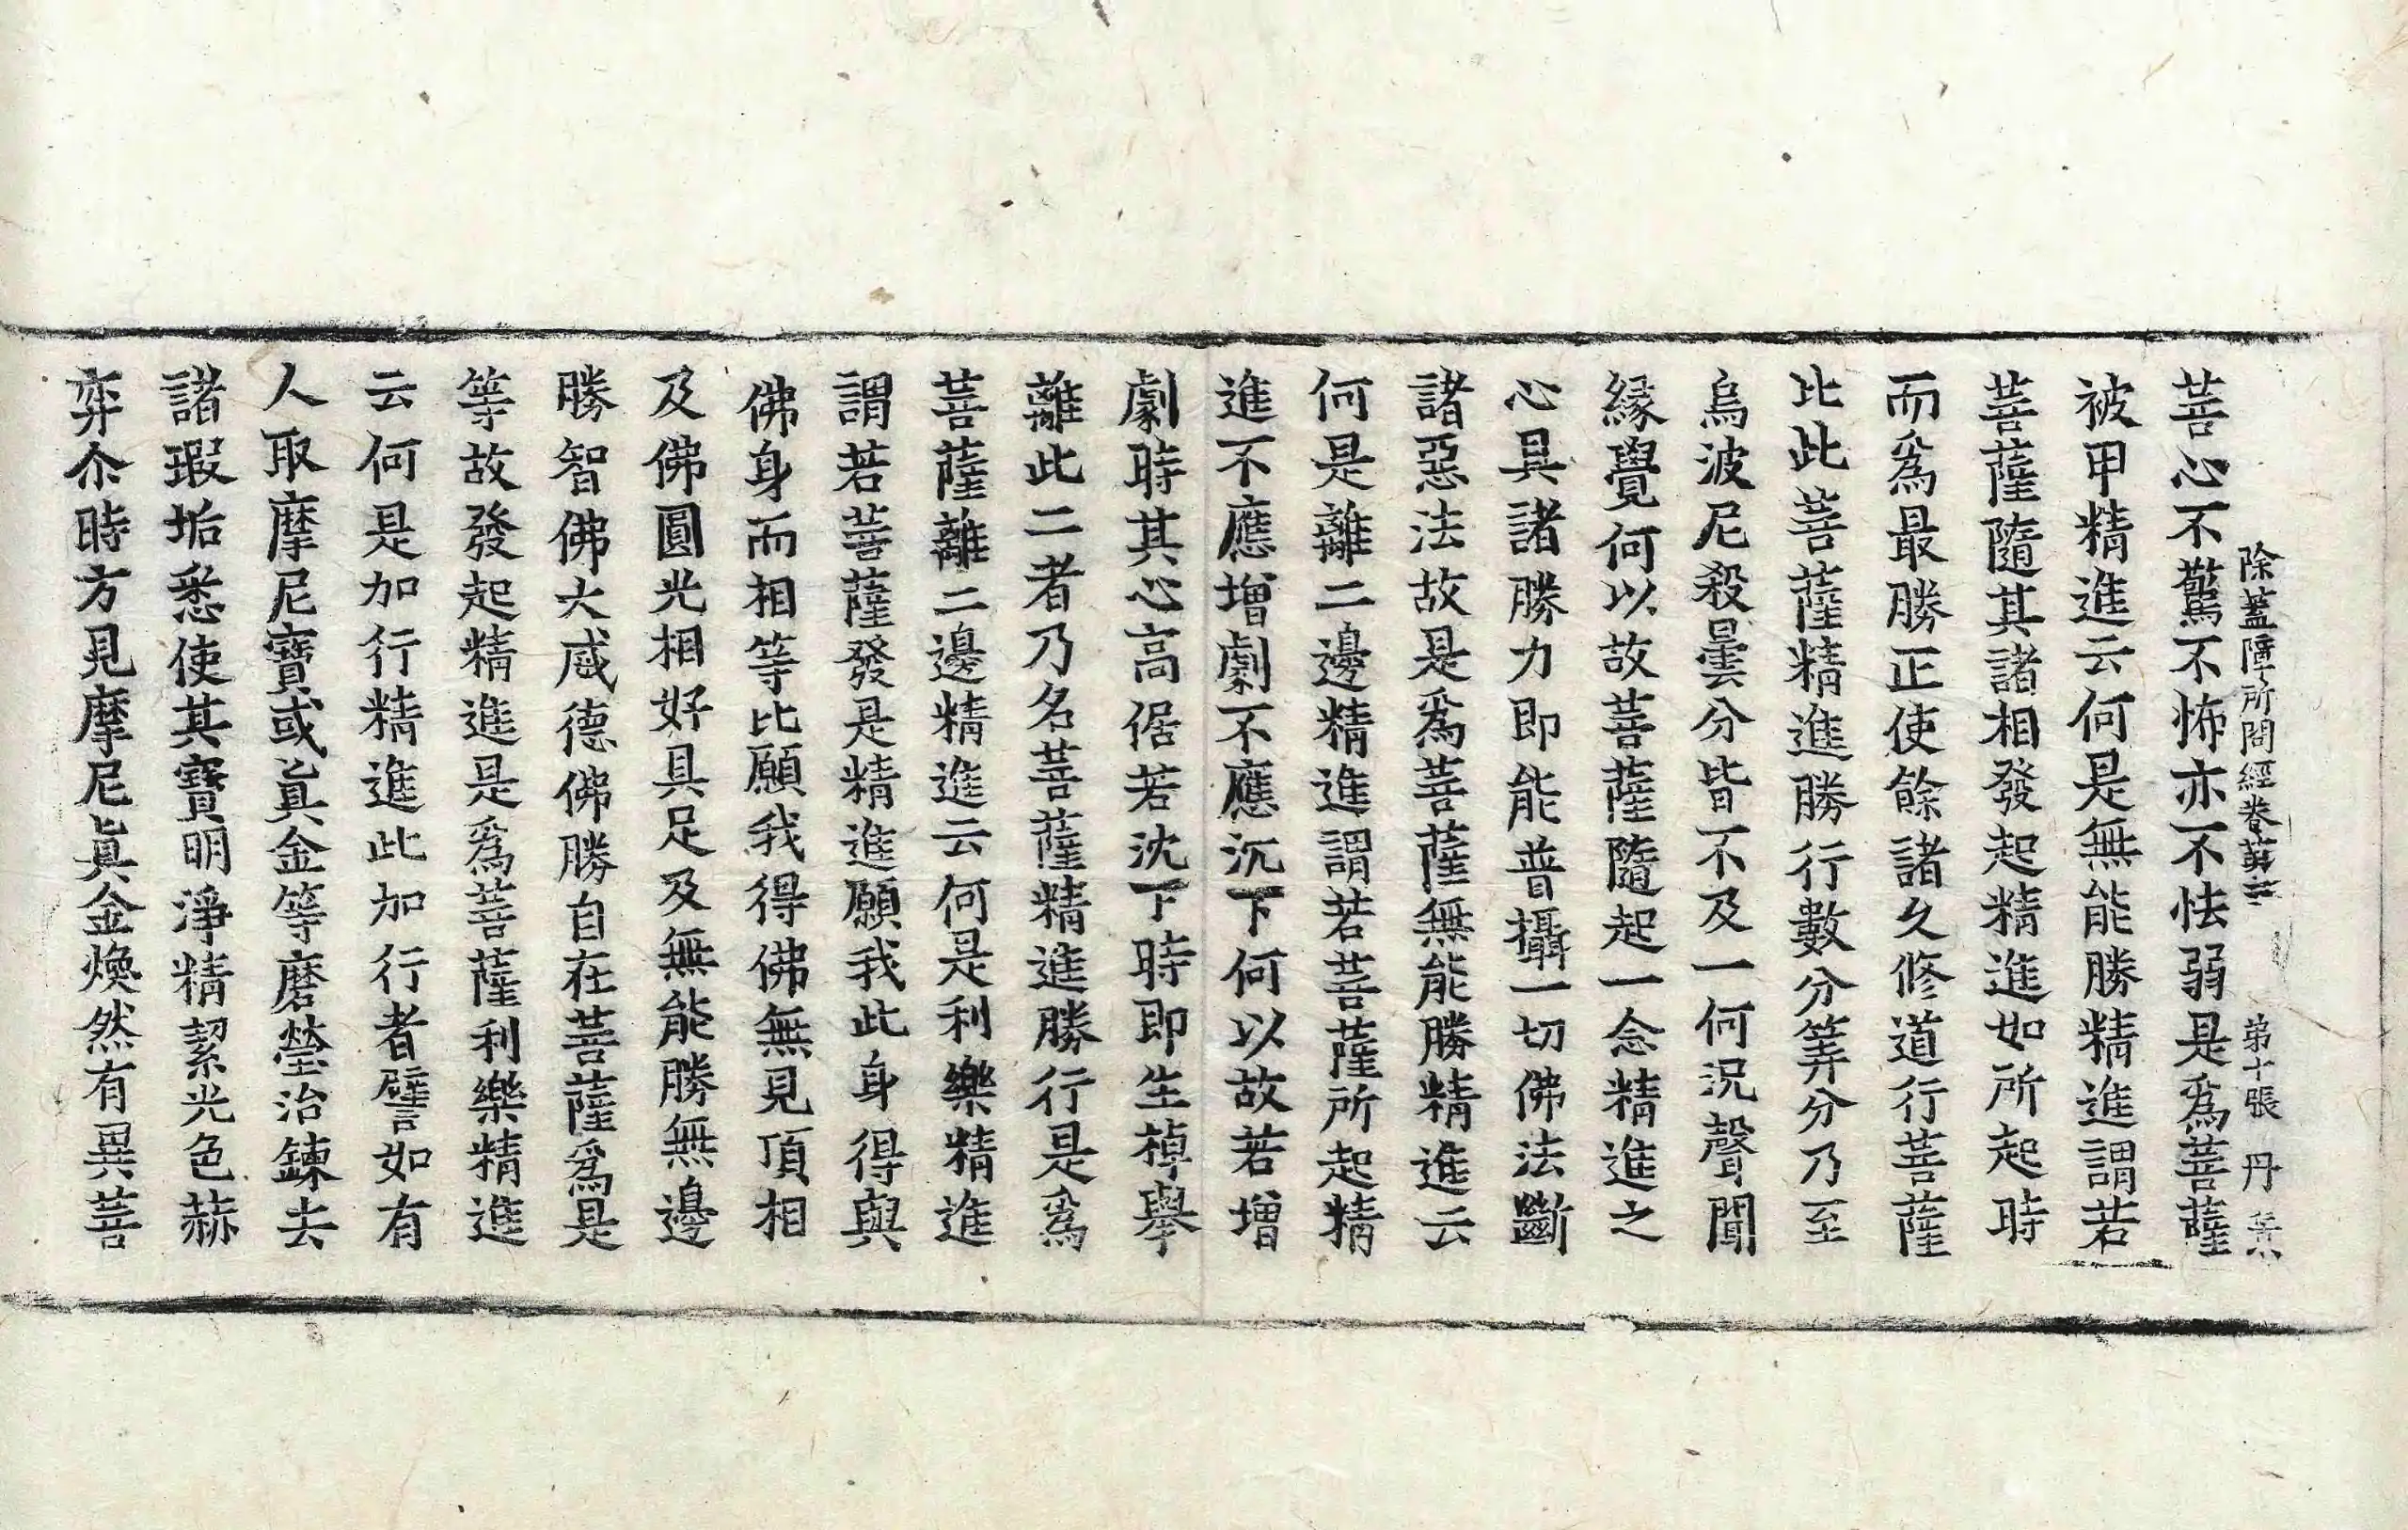 除蓋障所問經卷第三 第十張 丹
菩心不驚不怖亦不怯弱是爲菩薩
被甲精進云何是無能勝精進謂若
菩薩隨其諸相發起精進如所起時
而爲最勝正使餘諸久修道行菩薩
比此菩薩精進勝行數分筭分乃至
烏波尼殺曇分皆不及一何況聲聞
緣覺何以故菩薩隨起一念精進之
心具諸勝力即能普攝一切佛法斷
諸惡法故是爲菩薩無能勝精進云
何是離二邊精進謂若菩薩所起精
進不應增劇不應沉下何以故若增
劇時其心高倨若沈下時即生掉擧
離此二者乃名菩薩精進勝行是爲
菩薩離二邊精進云何是利樂精進
謂若菩薩發是精進願我此身得與
佛身而相等比願我得佛無見頂相
及佛圓光相好具足及無能勝無邊
勝智佛大威德佛勝自在菩薩爲是
等故發起精進是爲菩薩利樂精進
云何是加行精進此加行者譬如有
人取摩尼寶或眞金等磨瑩治鍊去
諸瑕垢悉使其寶明淨精絜光色赫
弈尒時方見摩尼眞金煥然有異菩